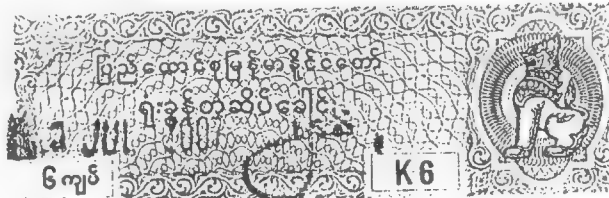 ပြည်ထောင်စုမြန်မာနိုင်ငံတော်
ရုံးခွန်တံဆိပ်ခေါင်း
JUL
၆ ကျပ်
K 6